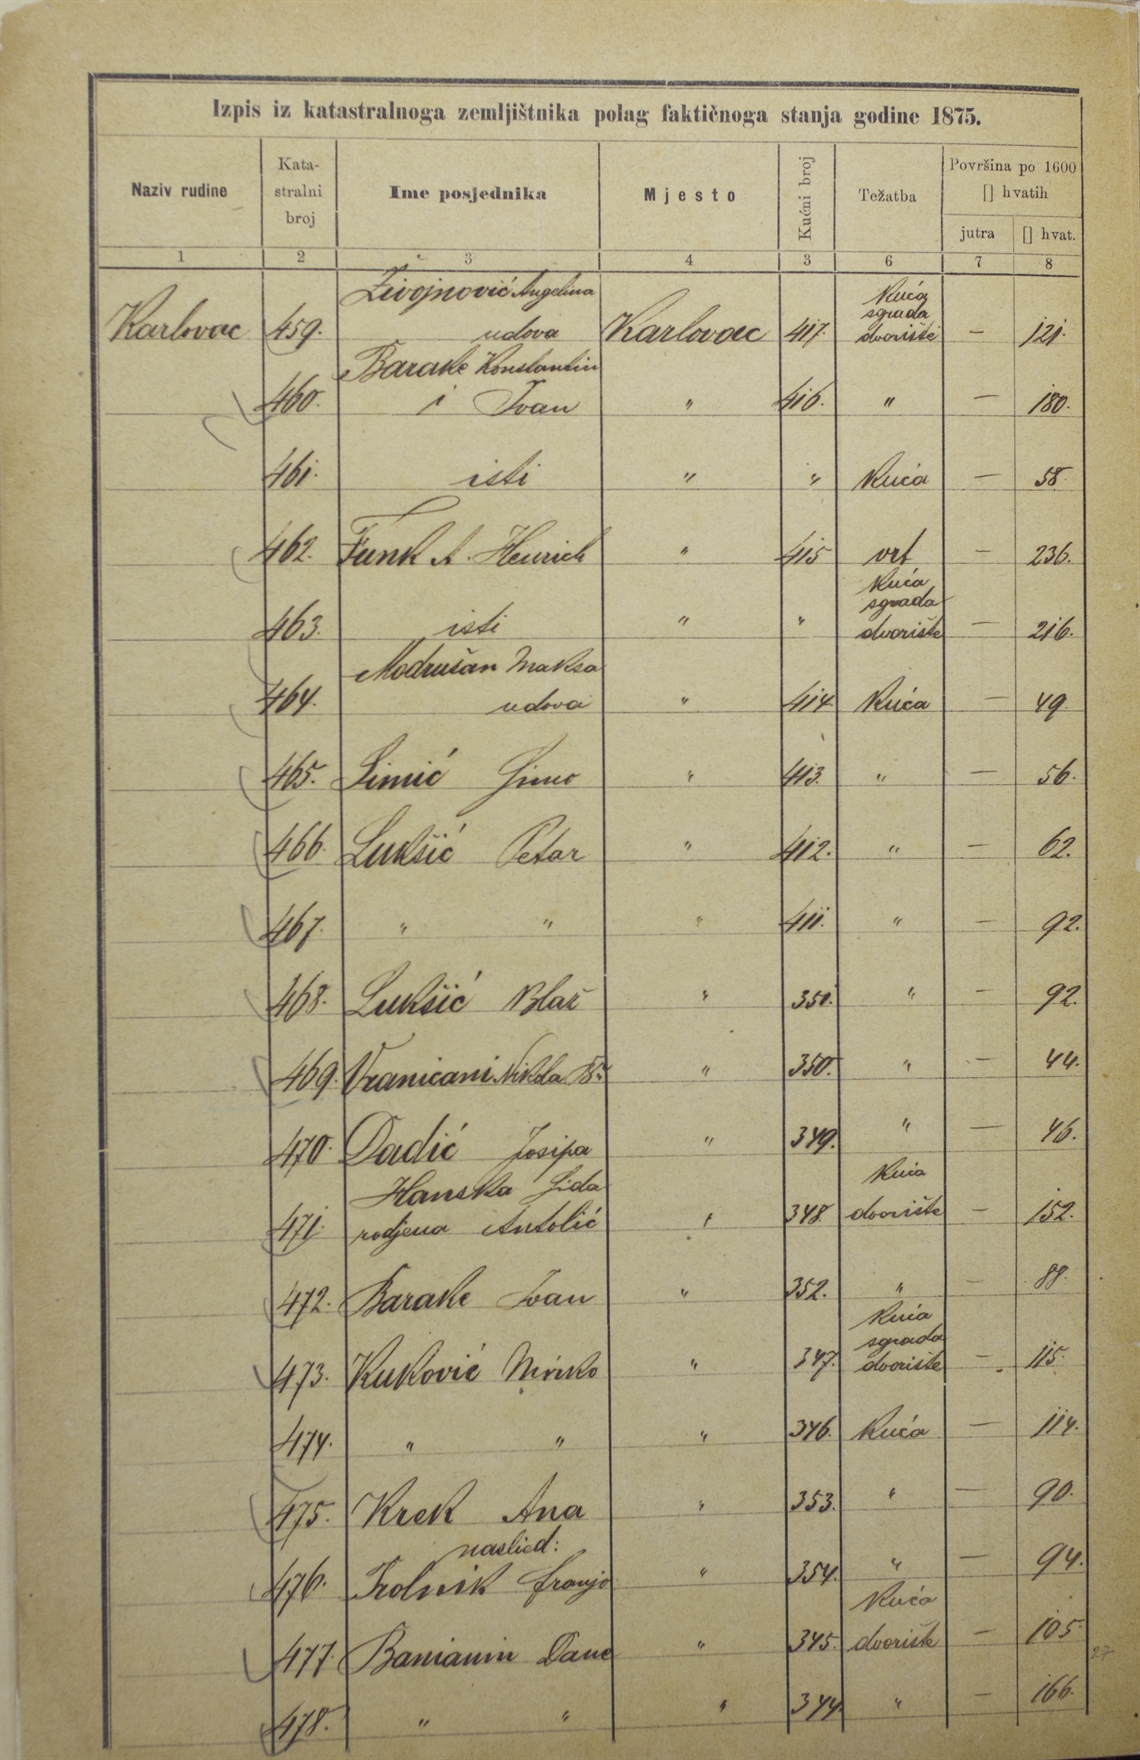 Izpis iz katastralnoga zemljištnika polag faktičnoga stanja godine 1875.
Naziv rudine Kata-stralni broj Ime posjednika Mjesto Kućni broj Težatba Površina po 1600 [] hvatih
jutra [] hvat.
1 2 3 4 3 6 7 8
Živojnović Angelina Kuća
sgrada
Karlovac 459. udova Karlovac 417. dvorište — 121.
Barake Konstantin
460. i Ivan " 416. " — 180.
461. isti " " Kuća — 58.
462. Funk A. Heinrich " 415 vrt — 236.
Kuća
sgrada
463. isti " " dvorište — 216.
Modrušan Maksa
464. udova " 414 Kuća — 49
465. Simić Simo " 413. " — 56.
466. Lukšić Petar " 412. " — 62.
467. " " " 411. " — 92.
468. Lukšić Blaž " 351. " — 92.
469. Vranicani Nikola " 350. " — 44.
470. Dadić Josipa " 349. " — 46.
Hanska Sida Kuća
471. rodjena Antolić " 348. dvorište — 152.
472. Barake Ivan " 352. " — 88.
Kuća
sgrada
473. Kuković Mirko " 347. dvorište — 115.
474. " " " 346. Kuća — 114.
475. Krek Ana " 353. " — 90.
naslied:
476. Trolnik Franjo " 354. " — 94.
Kuća
477. Banianin Dane " 345. dvorište — 105.
27
478. " " " 344 " — 166.